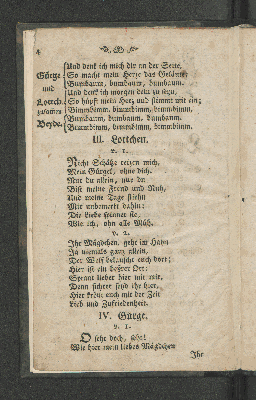 4
Und denk ich mich dir an der Seite,
Gürge So macht mein Herze das Geläute:
und Bumbaum, bumbaum, bumbaum.
Und denk ich morgen dein zu seyn,
Lottch. So hüpft mein Herz und stimmt mit ein;
zusammen Bimmbimm, bimmbimm, bimmbimm.
Beyde. Bumbaum, bumbaum, bumbaum.
Bimmbimm, bimmbimm, bimmbimm.
III. Lottchen.
v. 1.
Nicht Schätze reizen mich,
Mein Gürgel, ohne dich.
Nur du allein, nur du
Bist meine Freud und Ruh,
Und meine Tage fliehn
Mir unbemerkt dahin;
Die Liebe spinnet sie,
Wie ich, ohn alle Müh.
v. 2.
Ihr Mägdchen, geht im Hayn
Ja niemals ganz allein,
Der Wolf belauscht euch dort;
Hier ist ein beßrer Ort:
Spinnt lieber hier mit mir,
Denn sichrer seyd ihr hier,
Hier krönt euch mit der Zeit
Lieb und Zufriedenheit.
IV. Gürge.
v. 1.
O seht doch, seht!
Wie hier mein liebes Mägdchen
Ihr